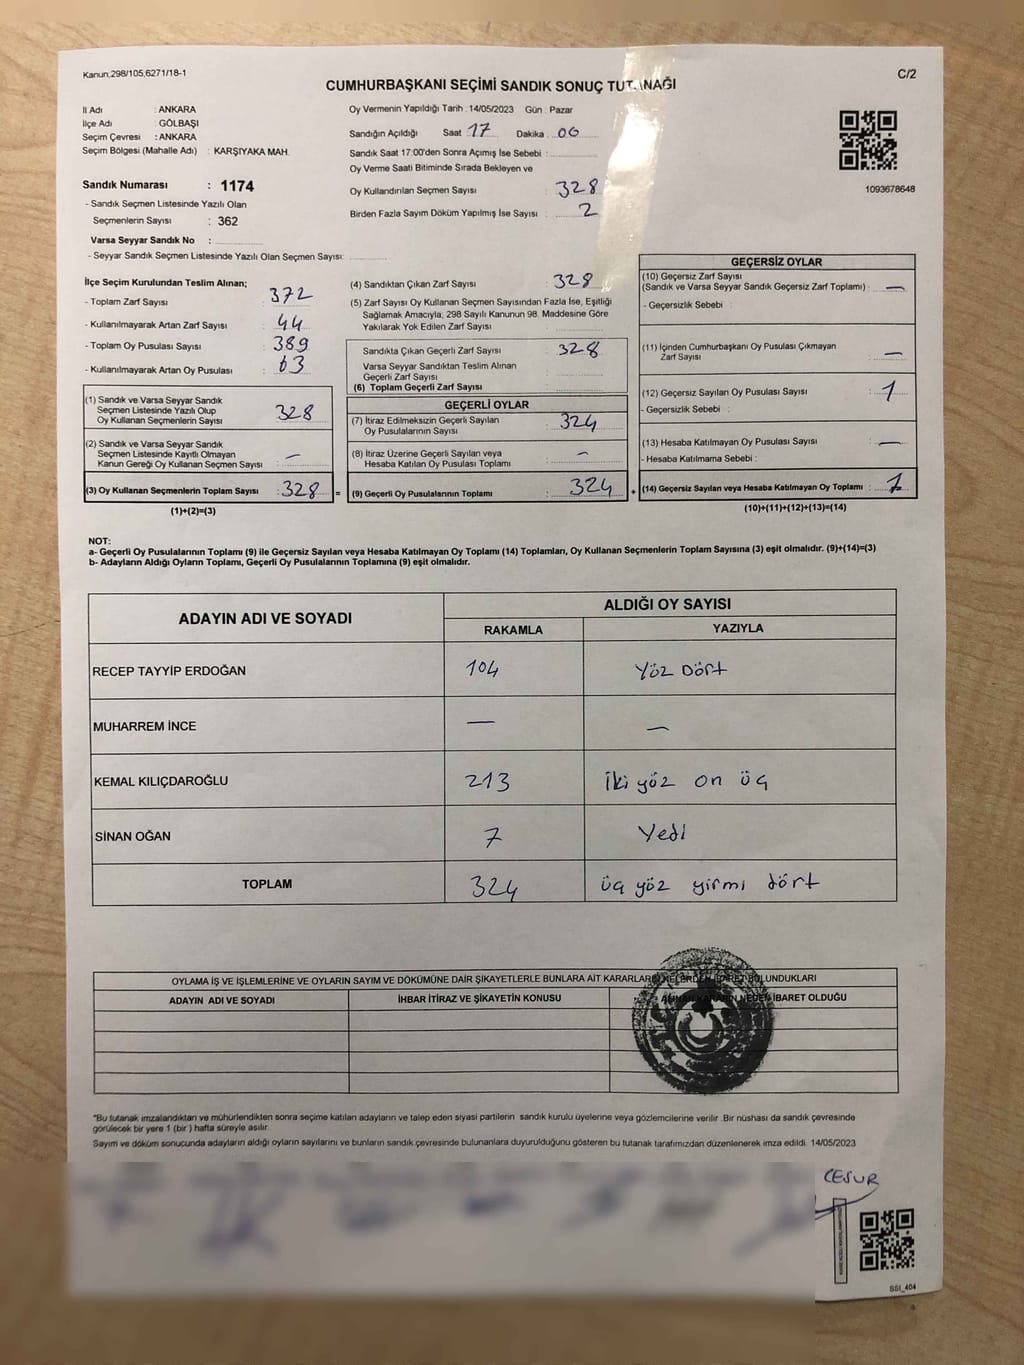 Kanun;298/105,6271/18-1
C/2
CUMHURBAŞKANI SEÇİMİ SANDIK SONUÇ TUTANAĞI
İl Adı : ANKARA
İlçe Adı : GÖLBAŞI
Seçim Çevresi : ANKARA
Seçim Bölgesi (Mahalle Adı) : KARŞIYAKA MAH.
Sandık Numarası : 1174
- Sandık Seçmen Listesinde Yazılı Olan
Seçmenlerin Sayısı : 362
Varsa Seyyar Sandık No :
- Seyyar Sandık Seçmen Listesinde Yazılı Olan Seçmen Sayısı:
Oy Vermenin Yapıldığı Tarih : 14/05/2023 Gün : Pazar
Sandığın Açıldığı Saat 17 Dakika : 06
Sandık Saat 17:00'den Sonra Açımış İse Sebebi :
Oy Verme Saati Bitiminde Sırada Bekleyen ve
Oy Kullandırılan Seçmen Sayısı : 328
Birden Fazla Sayım Döküm Yapılmış İse Sayısı : 2
1093678648
İlçe Seçim Kurulundan Teslim Alınan;
- Toplam Zarf Sayısı : 372
- Kullanılmayarak Artan Zarf Sayısı : 44
- Toplam Oy Pusulası Sayısı : 389
- Kullanılmayarak Artan Oy Pusulası : 63
(1) Sandık ve Varsa Seyyar Sandık
Seçmen Listesinde Yazılı Olup
Oy Kullanan Seçmenlerin Sayısı : 328
(2) Sandık ve Varsa Seyyar Sandık
Seçmen Listesinde Kayıtlı Olmayan
Kanun Gereği Oy Kullanan Seçmen Sayısı : —
(3) Oy Kullanan Seçmenlerin Toplam Sayısı : 328
(1)+(2)=(3)
(4) Sandıktan Çıkan Zarf Sayısı : 328
(5) Zarf Sayısı Oy Kullanan Seçmen Sayısından Fazla İse, Eşitliği
Sağlamak Amacıyla; 298 Sayılı Kanunun 98. Maddesine Göre
Yakılarak Yok Edilen Zarf Sayısı :
Sandıkta Çıkan Geçerli Zarf Sayısı : 328
Varsa Seyyar Sandıktan Teslim Alınan
Geçerli Zarf Sayısı :
(6) Toplam Geçerli Zarf Sayısı :
GEÇERLİ OYLAR
(7) İtiraz Edilmeksizin Geçerli Sayılan
Oy Pusulalarının Sayısı : 324
(8) İtiraz Üzerine Geçerli Sayılan veya
Hesaba Katılan Oy Pusulası Toplamı : —
= (9) Geçerli Oy Pusulalarının Toplamı : 324
GEÇERSİZ OYLAR
(10) Geçersiz Zarf Sayısı
(Sandık ve Varsa Seyyar Sandık Geçersiz Zarf Toplamı) : —
- Geçersizlik Sebebi :
(11) İçinden Cumhurbaşkanı Oy Pusulası Çıkmayan
Zarf Sayısı : —
(12) Geçersiz Sayılan Oy Pusulası Sayısı : 1
- Geçersizlik Sebebi :
(13) Hesaba Katılmayan Oy Pusulası Sayısı : —
- Hesaba Katılmama Sebebi :
+ (14) Geçersiz Sayılan veya Hesaba Katılmayan Oy Toplamı : 1
(10)+(11)+(12)+(13)=(14)
NOT:
a- Geçerli Oy Pusulalarının Toplamı (9) ile Geçersiz Sayılan veya Hesaba Katılmayan Oy Toplamı (14) Toplamları, Oy Kullanan Seçmenlerin Toplam Sayısına (3) eşit olmalıdır. (9)+(14)=(3)
b- Adayların Aldığı Oyların Toplamı, Geçerli Oy Pusulalarının Toplamına (9) eşit olmalıdır.
ADAYIN ADI VE SOYADI
ALDIĞI OY SAYISI
RAKAMLA YAZIYLA
RECEP TAYYİP ERDOĞAN 104 Yöz Dört
MUHARREM İNCE — —
KEMAL KILIÇDAROĞLU 213 İki yöz on üç
SİNAN OĞAN 7 Yedi
TOPLAM 324 üç yöz yirmi dört
OYLAMA İŞ VE İŞLEMLERİNE VE OYLARIN SAYIM VE DÖKÜMÜNE DAİR ŞİKAYETLERLE BUNLARA AİT KARARLARIN NELERDEN İBARET BULUNDUKLARI
ADAYIN ADI VE SOYADI İHBAR İTİRAZ VE ŞİKAYETİN KONUSU ALINAN KARARIN NEDEN İBARET OLDUĞU
*Bu tutanak imzalandıktan ve mühürlendikten sonra seçime katılan adayların ve talep eden siyasi partilerin sandık kurulu üyelerine veya gözlemcilerine verilir .Bir nüshası da sandık çevresinde
görülecek bir yere 1 (bir ) hafta süreyle asılır.
Sayım ve döküm sonucunda adayların aldığı oyların sayılarını ve bunların sandık çevresinde bulunanlara duyurulduğunu gösteren bu tutanak tarafımızdan düzenlenerek imza edildi. 14/05/2023
CESUR
SSI_404